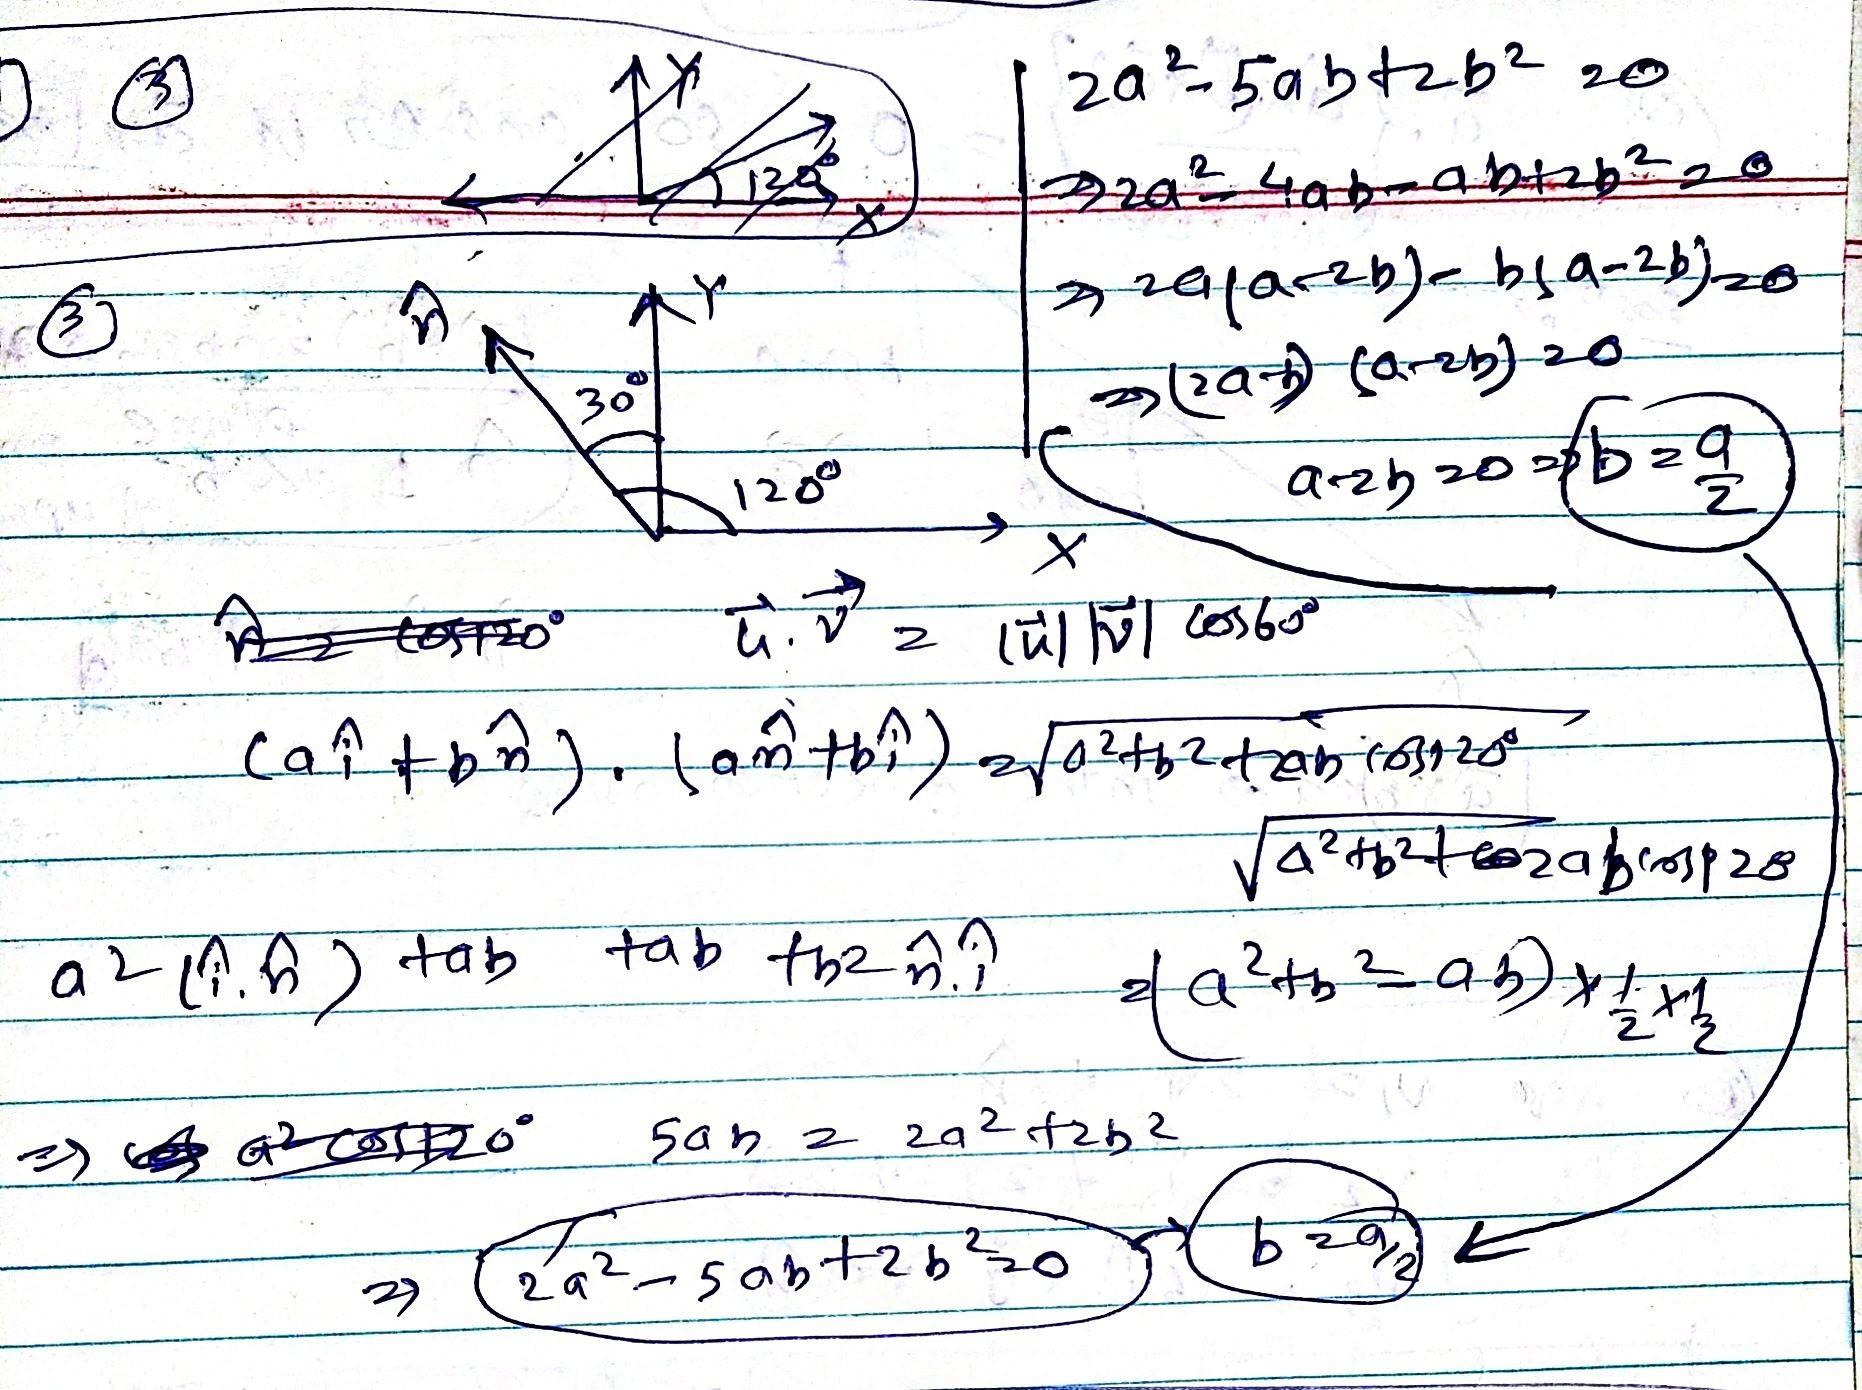 ③
Y
120°
X
2a² - 5ab + 2b² = 0
⇒ 2a² - 4ab - ab + 2b² = 0
⇒ 2a(a-2b) - b(a-2b) = 0
⇒ (2a-b) (a-2b) = 0
a-2b = 0 ⇒ b = a/2
③
n̂
Y
30°
120°
X
n̂ = cos120° u⃗.v⃗ = |u⃗| |v⃗| cos60°
(aî + bn̂). (an̂ + bî) = √(a²+b²+2ab cos120°
√(a²+b²+2ab cos120
a² (î.n̂) + ab + ab + b² n̂.î = (a²+b² - ab) × 1/2 × 1/2
⇒ a² cos120° 5ab = 2a² + 2b²
⇒ 2a² - 5ab + 2b² = 0 → b = a/2